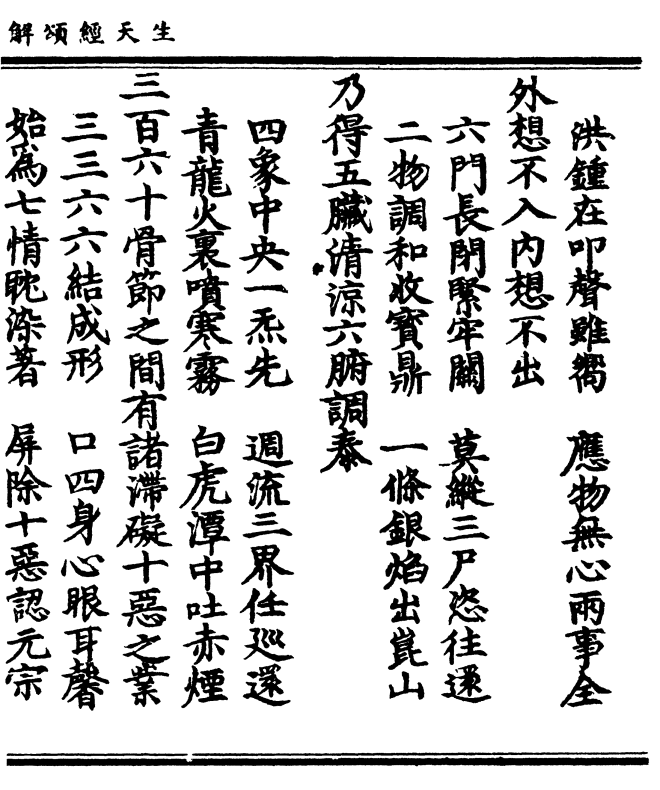 生天經頌解
洪鍾在叩聲雖嚮　應物無心兩事全
外想不入內想不出
六門長閉緊牢關　莫縱三尸恣往還
二物調和收寶鼎　一條銀焰出崑山
乃得五臟清涼六腑調泰
四象中央一炁先　週流三界任廵還
青龍火裏噴寒霧　白虎潭中吐赤煙
三百六十骨節之間有諸滯礙十惡之業
三三六六結成形　口四身心眼耳馨
始為七情眈染著　屏除十惡認元宗